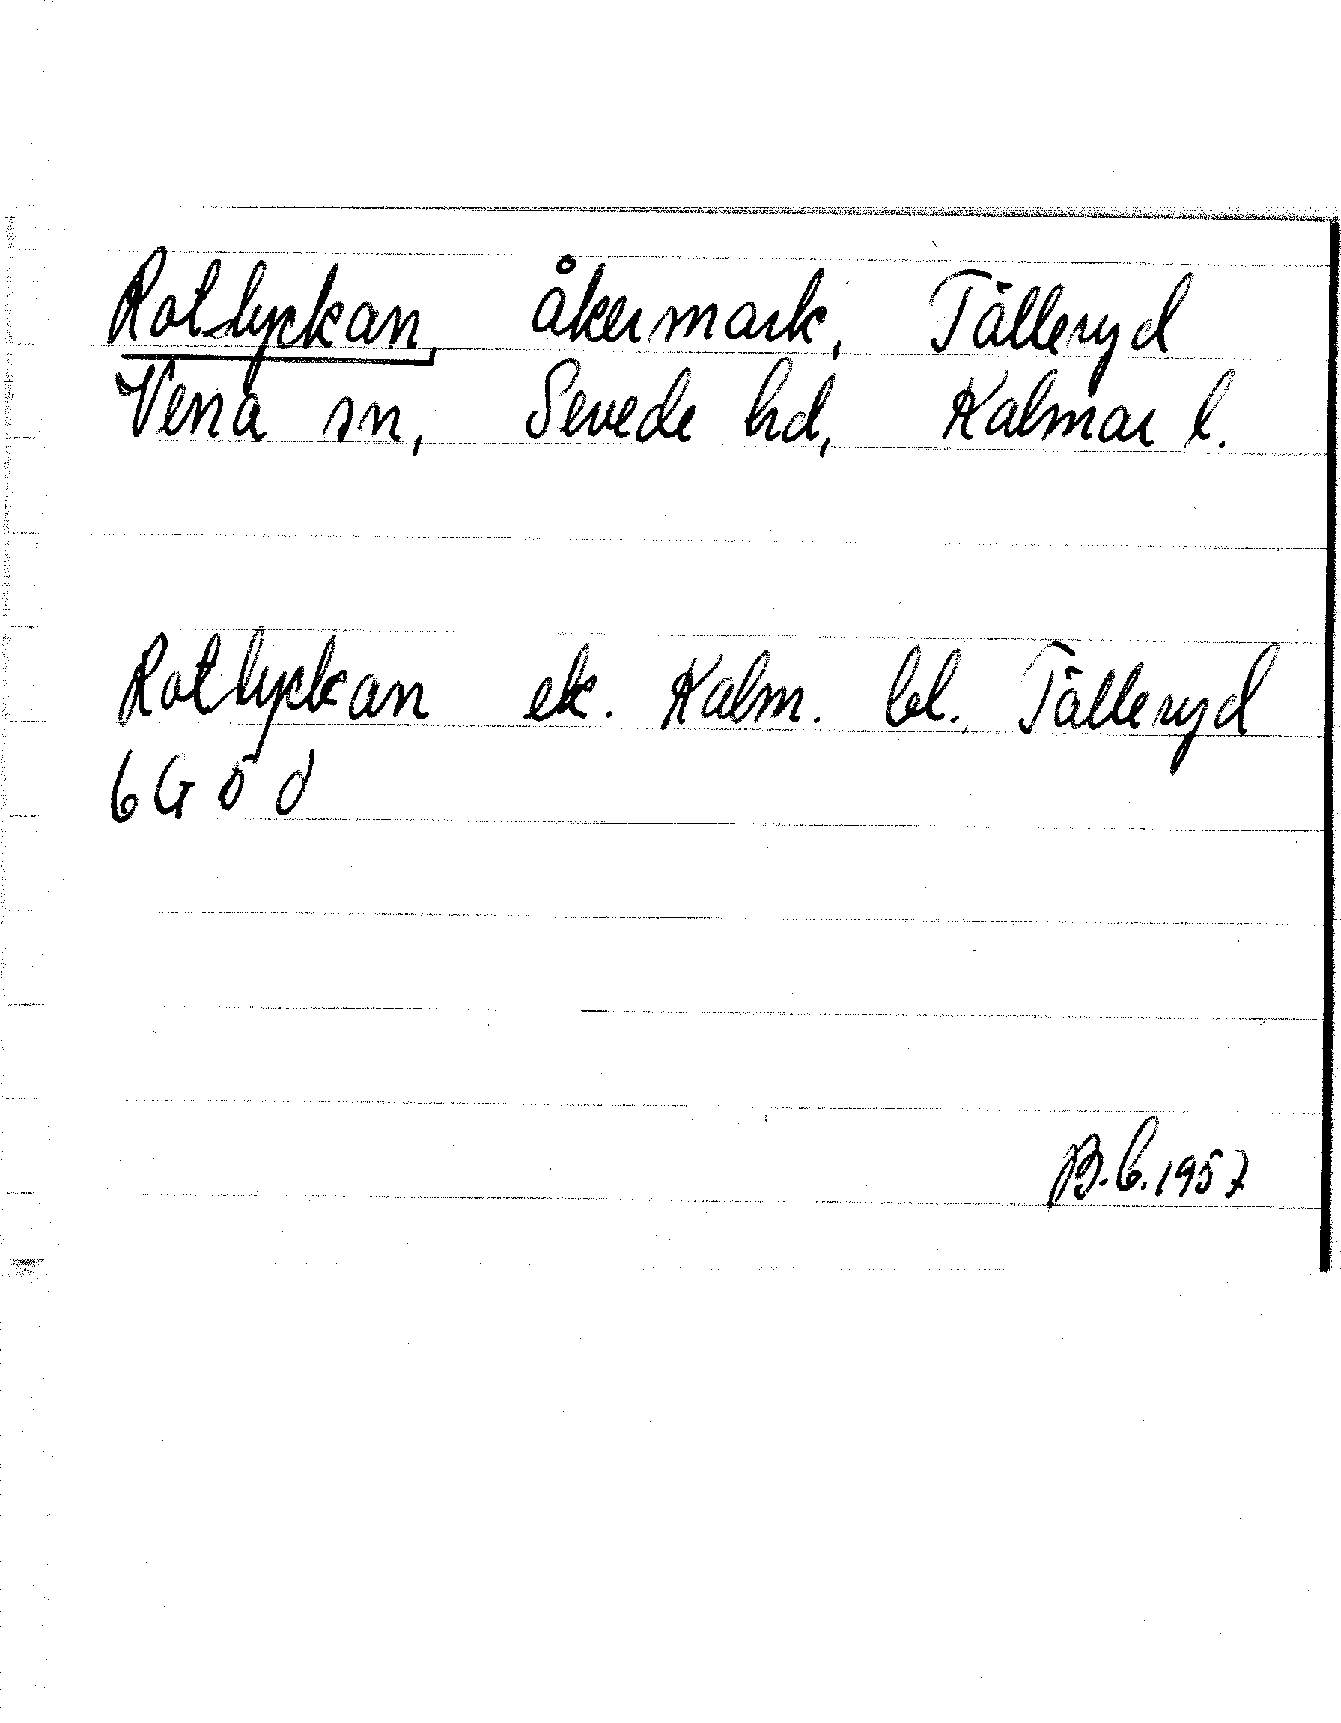 Rotlyckan, åkermark, Tälleryd
Vena sn, Sevede hd, Kalmar l.
Rotlyckan ek. Kalm. bl. Tälleryd
6G5d
B.C.1957